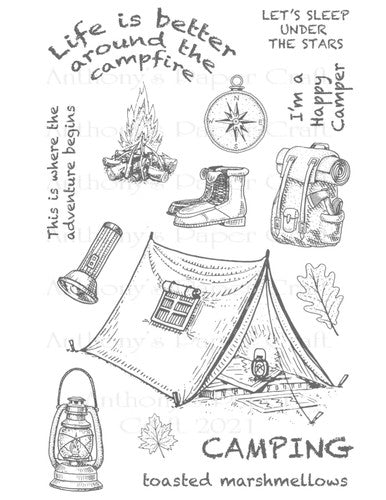 Life is better
around the
campfire
LET'S SLEEP
UNDER
THE STARS
I'm a
Happy
Camper
This is where the
adventure begins
Anthony's Paper Craft
Anthony's Paper Craft
Anthony's Paper Craft
Anthony's Paper
Craft 2021
CAMPING
toasted marshmellows